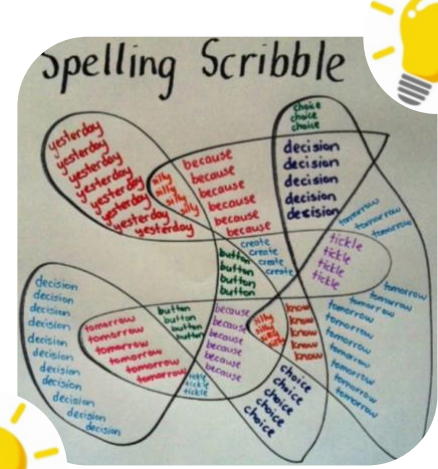 Spelling Scribble
choice
choice
choice
yesterday
yesterday
yesterday
yesterday
yesterday
yesterday
yesterday
yesterday
silly
silly
silly
silly
because
because
because
because
because
because
decision
decision
decision
decision
decision
tomorrow
tomorrow
tomorrow
create
create
create
create
button
button
button
button
tickle
tickle
tickle
tickle
decision
decision
decision
decision
decision
decision
decision
decision
decision
decision
decision
tomorrow
tomorrow
tomorrow
tomorrow
tomorrow
button
button
button
button
tickle
tickle
because
because
because
because
because
because
silly
silly
silly
know
know
know
know
know
choice
choice
choice
choice
choice
tomorrow
tomorrow
tomorrow
tomorrow
tomorrow
tomorrow
tomorrow
tomorrow
tomorrow
tomorrow